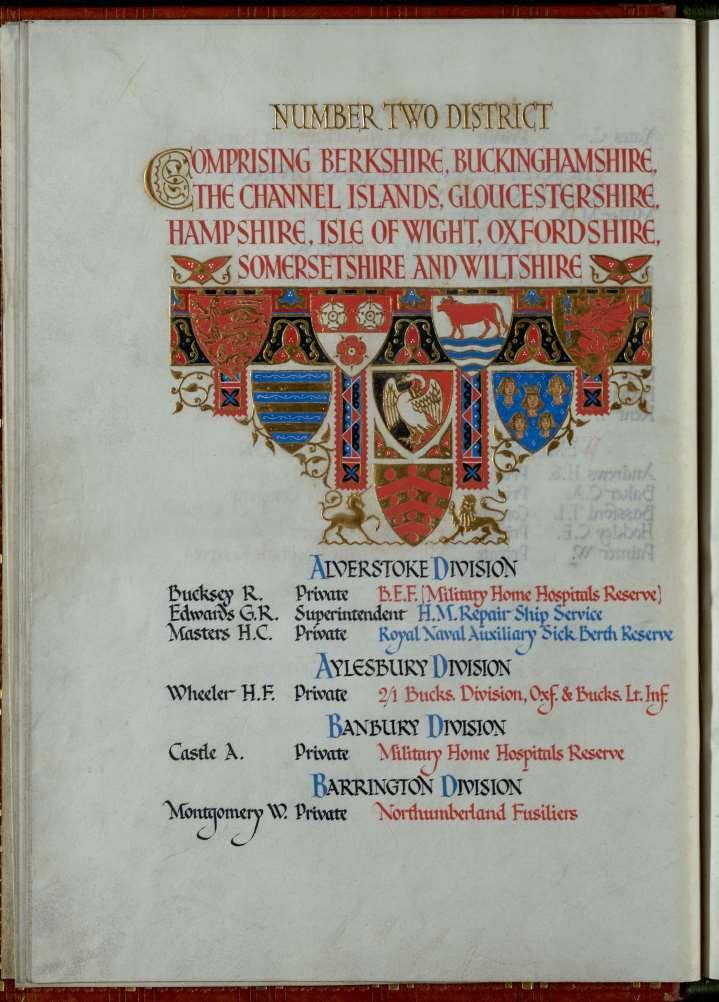 NUMBER TWO DISTRICT
COMPRISING BERKSHIRE, BUCKINGHAMSHIRE,
THE CHANNEL ISLANDS, GLOUCESTERSHIRE,
HAMPSHIRE, ISLE OF WIGHT, OXFORDSHIRE,
SOMERSETSHIRE AND WILTSHIRE
ALVERSTOKE DIVISION
Bucksey R. Private B.E.F. (Military Home Hospitals Reserve)
Edwards G.R. Superintendent H.M. Repair Ship Service
Masters H.C. Private Royal Naval Auxiliary Sick Berth Reserve
AYLESBURY DIVISION
Wheeler H.F. Private 2/1 Bucks. Division, Oxf. & Bucks. Lt. Inf.
BANBURY DIVISION
Castle A. Private Military Home Hospitals Reserve
BARRINGTON DIVISION
Montgomery W. Private Northumberland Fusiliers